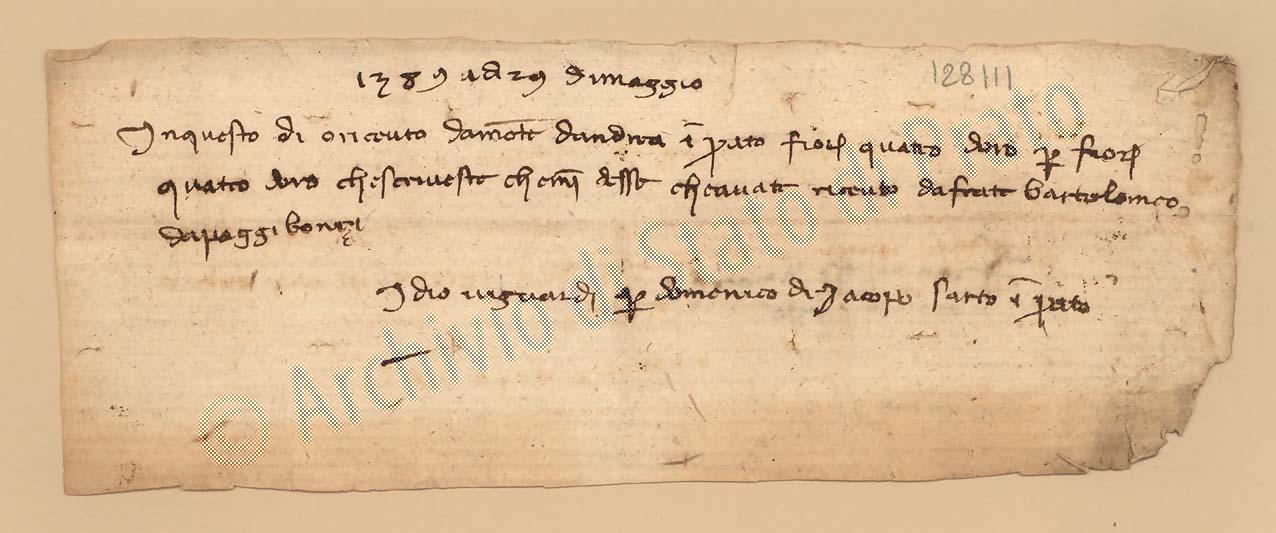 1389 adi 29 dimaggio
128111
Inquesto di oriceuto damōte dandrea ī prato fior quatro doro p fior
quatro doro chescriveste chemi desse cheavate riceuto dafrate bartolomeo
dapoggibonizi
Idio viguardi p domenico di Jacopo sarto ī prato
© Archivio di Stato di Prato